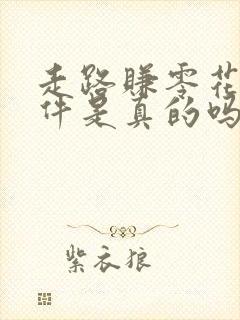 走路赚零花
件是真的吗
紫衣狼